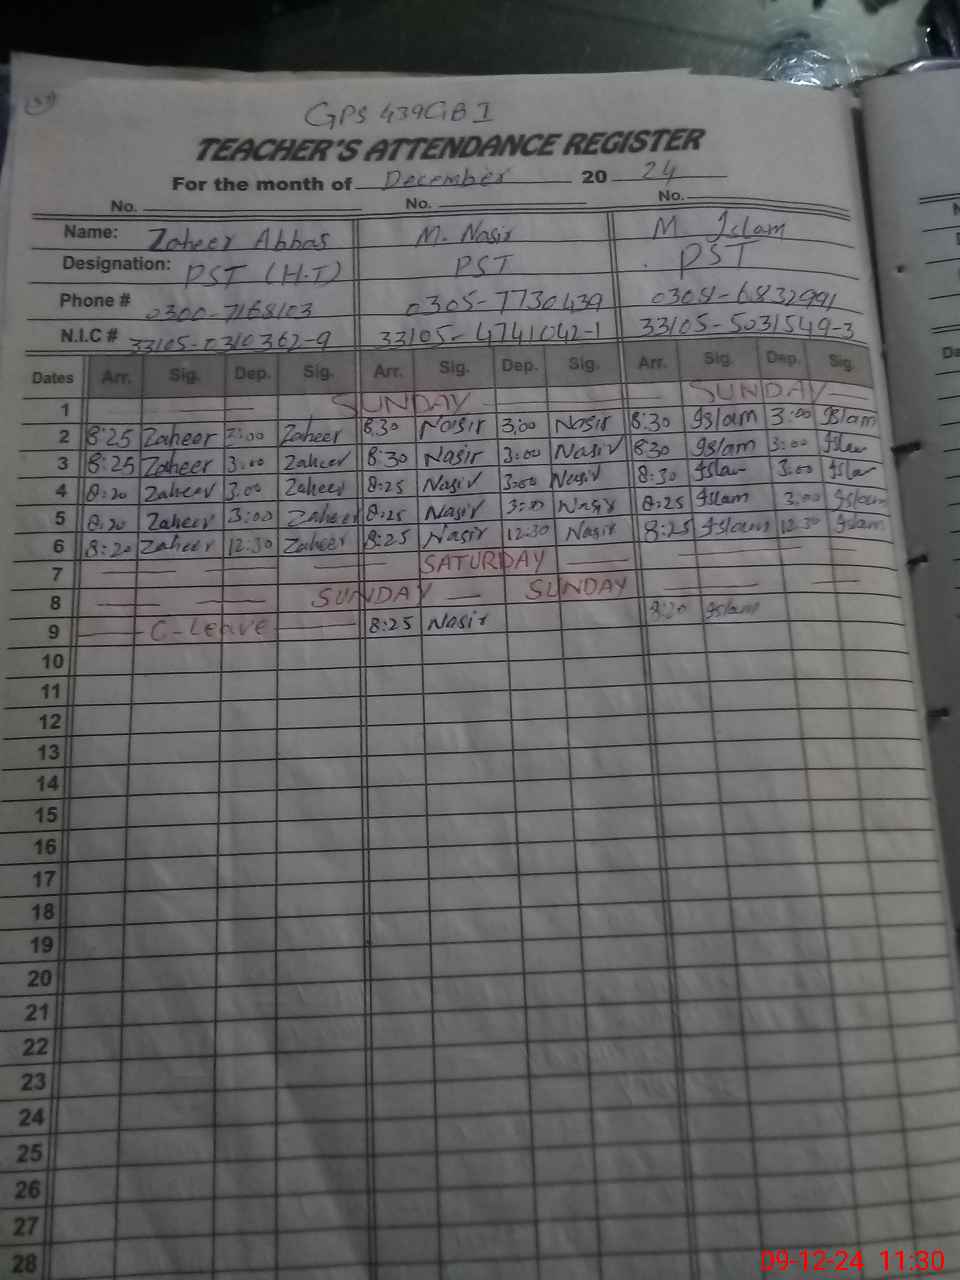 GPS 439GB I
TEACHER'S ATTENDANCE REGISTER
For the month of December 20 24
No. No. No.
Name: Zaheer Abbas M. Nasir M. Islam
Designation: PST (H.T) PST PST
Phone # 0300-7168103 0305-7730439 03051-6832991
N.I.C # 33105-0310362-9 33105-4741042-1 33105-5031549-3
Dates Arr. Sig. Dep. Sig. Arr. Sig. Dep. Sig. Arr. Sig. Dep. Sig.
1 SUNDAY SUNDAY
2 8:25 Zaheer 3:00 Zaheer 8:30 Nasir 3:00 Nasir 8:30 Islam 3:00 Islam
3 8:25 Zaheer 3:00 Zaheer 8:30 Nasir 3:00 Nasir 8:30 Islam 3:00 Islam
4 8:20 Zaheer 3:00 Zaheer 8:25 Nasir 3:00 Nasir 8:30 Islam 3:00 Islam
5 8:20 Zaheer 3:00 Zaheer 8:25 Nasir 3:00 Nasir 8:25 Islam 3:00 Islam
6 8:20 Zaheer 12:30 Zaheer 8:25 Nasir 12:30 Nasir 8:25 Islam 12:30 Islam
7 SATURDAY
8 SUNDAY SUNDAY
9 C-Leave 8:25 Nasir 8:20 Islam
10
11
12
13
14
15
16
17
18
19
20
21
22
23
24
25
26
27
28
09-12-24 11:30